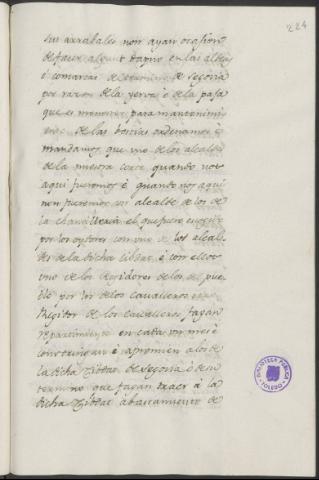 224
sus arrabales non ayan ocasion
de facer algunt dapno en las aldeas
é comarcas de termino de Segovia
por razon de la yerva é de la paja
que es menester para mantenimi
ento de las bestias ordenamos é
mandamos que uno de los alcaldes
de la nuestra corte quando nos
aqui fueremos é quando nos aqui
non fueremos un alcalde de los de
la chancilleria el que fuere
por los oydores con uno de los alcal
des de la dicha Cibdat é con ellos
uno de los Regidores de los de pue
blo por los de los cavalleros
Regidor de los cavalleros fagan
repartimiento en cada un mes é
constringan é apremien a los de
la dicha Cibdat de Segovia é de su
termino que fagan traer á la
dicha Cibdat abastamiento de
BIBLIOTECA PUBLICA
TOLEDO